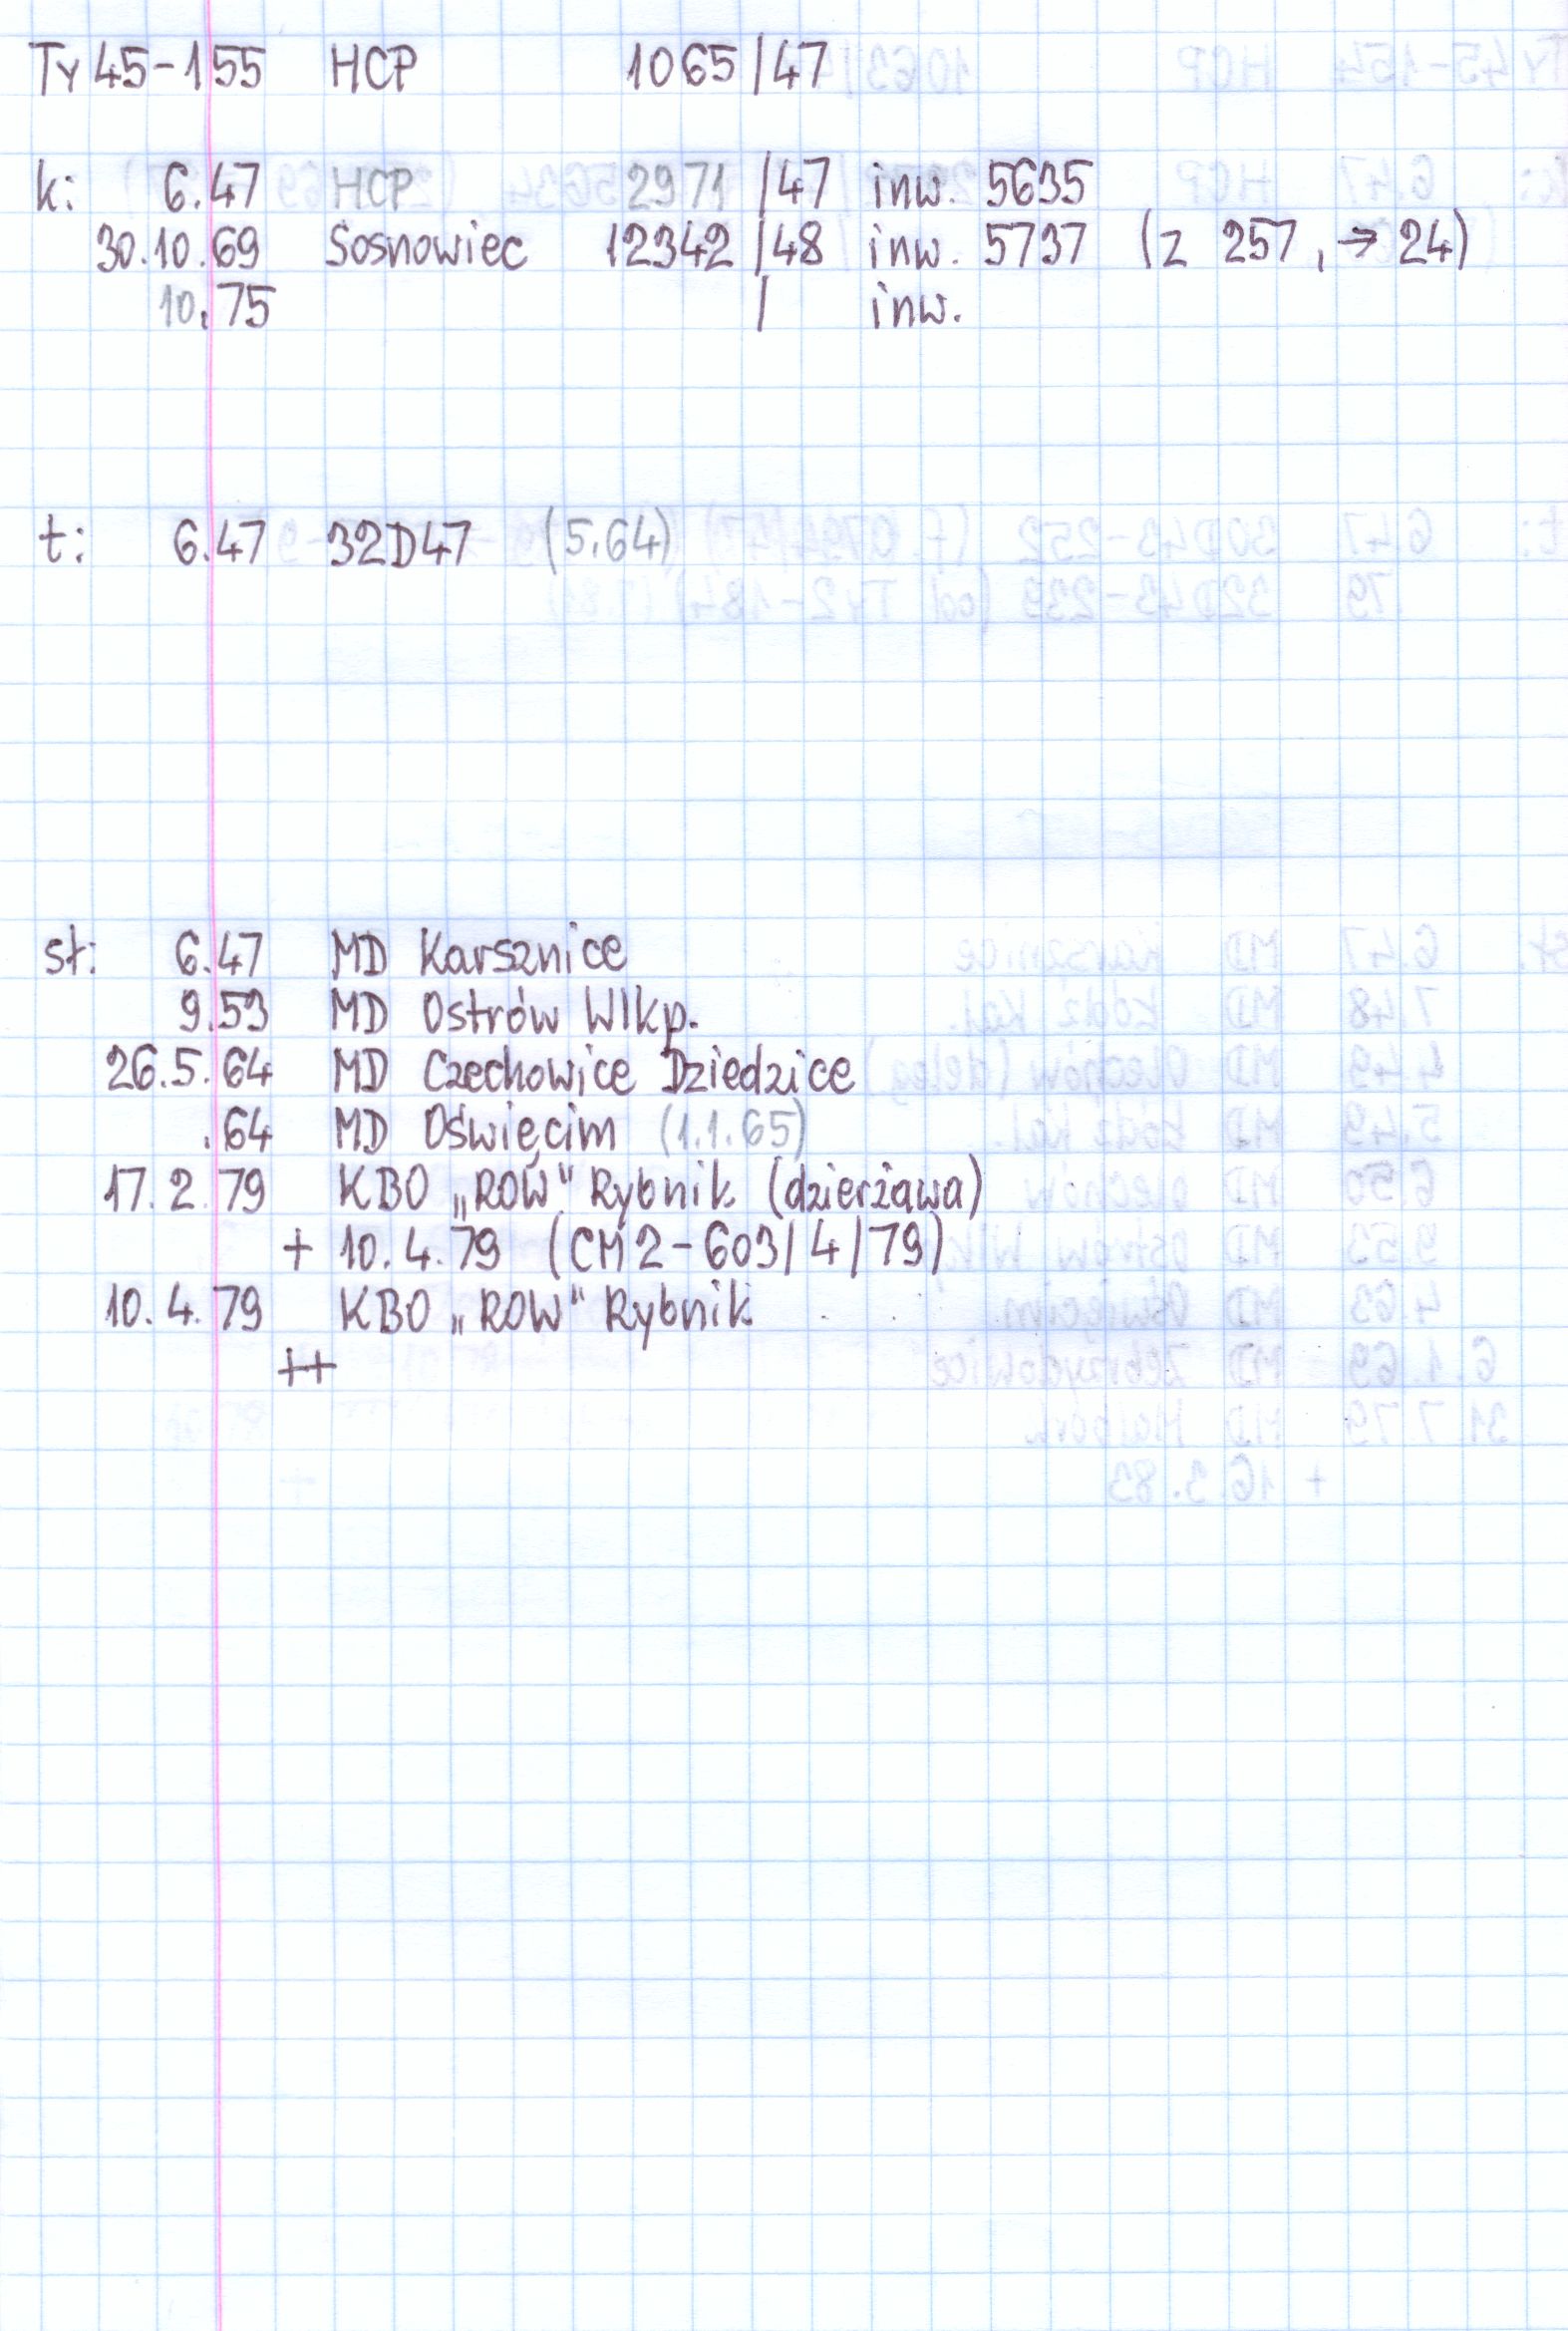 Ty 45-155 HCP 1065/47
k: 6.47 HCP 2971/47 inw. 5635
30.10.69 Sosnowiec 12342/48 inw. 5737 (z 257, → 24)
10.75 / inw.
t: 6.47 32D47 (5.64)
st: 6.47 MD Karsznice
9.53 MD Ostrów Wlkp.
26.5.64 MD Czechowice Dziedzice
.64 MD Oświęcim (1.1.65)
17.2.79 KBO „ROW" Rybnik (dzierżawa)
+ 10.4.79 (CM2-603/4/79)
10.4.79 KBO „ROW" Rybnik
++